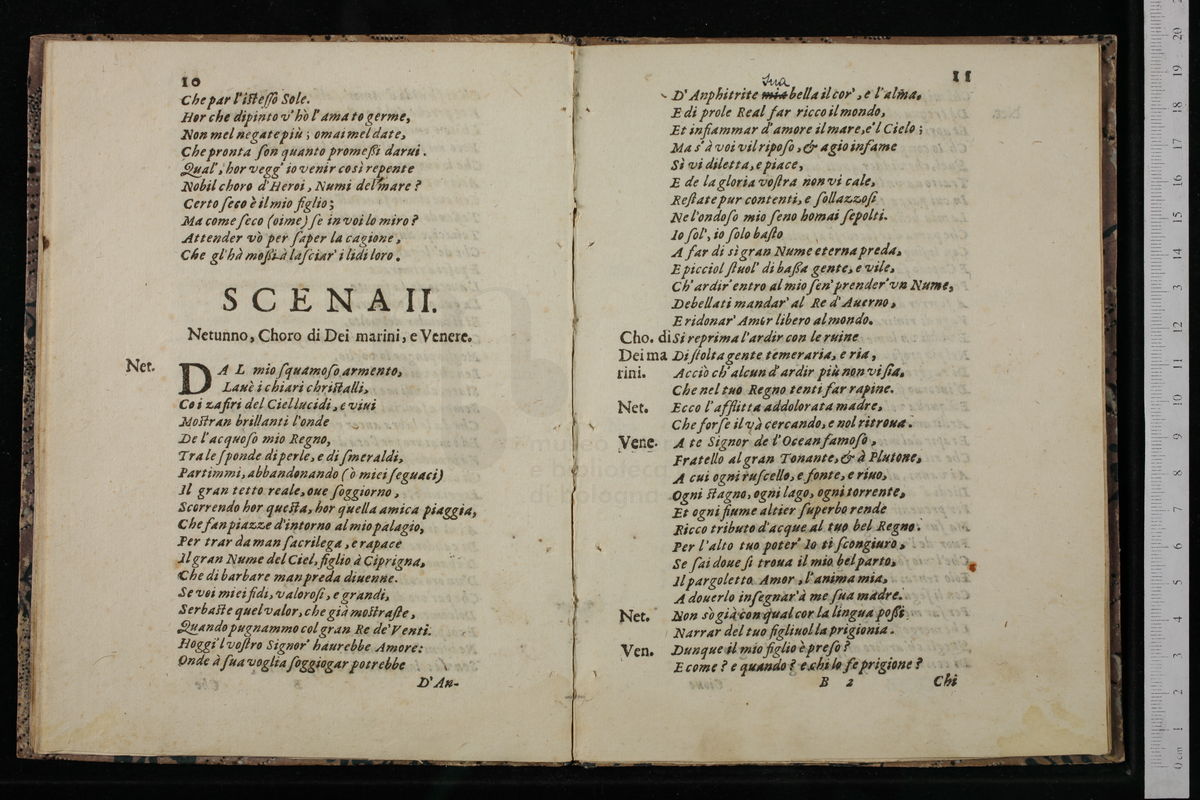 10
Che par l'istesso Sole.
Hor che dipinto v'hò l'amato germe,
Non mel negate più; omai mel date,
Che pronta son quanto promessi darui.
Qual', hor vegg' io venir così repente
Nobil choro d'Heroi, Numi del mare?
Certo seco è il mio figlio;
Ma come seco (oime) se in voi lo miro?
Attender vò per saper la cagione,
Che gl'hà mossi à lasciar' i lidi loro.
SCENA II.
Netunno, Choro di Dei marini, e Venere.
Net. DAL mio squamoso armento,
Lauè i chiari christalli,
Co i zafiri del Ciel lucidi, e viui
Mostran brillanti l'onde
De l'acquoso mio Regno,
Tra le sponde di perle, e di smeraldi,
Partimmi, abbandonando (ò miei seguaci)
Il gran tetto reale, oue soggiorno,
Scorrendo hor questa, hor quella amica piaggia,
Che fan piazze d'intorno al mio palagio,
Per trar da man sacrilega, e rapace
Il gran Nume del Ciel, figlio à Ciprigna,
Che di barbare man preda diuenne.
Se voi miei fidi, valorosi, e grandi,
Serbaste quel valor, che già mostraste,
Quando pugnammo col gran Re de' Venti.
Hoggi'l vostro Signor' haurebbe Amore:
Onde à sua voglia soggiogar potrebbe
D'An-
11
sua
D'Anphitrite mia bella il cor', e l'alma,
E di prole Real far ricco il mondo,
Et infiammar d'amore il mare, e'l Cielo;
Ma s'à voi vil riposo, & agio infame
Sì vi diletta, e piace,
E de la gloria vostra non vi cale,
Restate pur contenti, e sollazzosi
Ne l'ondoso mio seno homai sepolti.
Io sol', io solo basto
A far di sì gran Nume eterna preda,
E picciol stuol' di bassa gente, e vile,
Ch'ardir' entro al mio sen' prender' vn Nume,
Debellati mandar' al Re d'Auerno,
E ridonar' Amor libero al mondo.
Cho. di Si reprima l'ardir con le ruine
Dei ma Di stolta gente temeraria, e ria,
rini. Acciò ch'alcun d'ardir più non vi sia,
Che nel tuo Regno tenti far rapine.
Net. Ecco l'afflitta addolorata madre,
Che forse il và cercando, e nol ritroua.
Vene. A te Signor de l'Ocean famoso,
Fratello al gran Tonante, & à Plutone,
A cui ogni ruscello, e fonte, e riuo,
Ogni stagno, ogni lago, ogni torrente,
Et ogni fiume altier superbo rende
Ricco tributo d'acque al tuo bel Regno.
Per l'alto tuo poter' Io ti scongiuro,
Se sai doue si troua il mio bel parto,
Il pargoletto Amor, l'anima mia,
A douerlo insegnar' à me sua madre.
Net. Non sò già con qual cor la lingua possi
Narrar del tuo figliuol la prigionia.
Ven. Dunque il mio figlio è preso?
E come? e quando? e chi lo fe prigione?
B 2 Chi
museo
e biblioteca
di bologna
20
19
18
17
16
15
14
13
12
11
10
9
8
7
6
5
4
3
2
1
0 cm